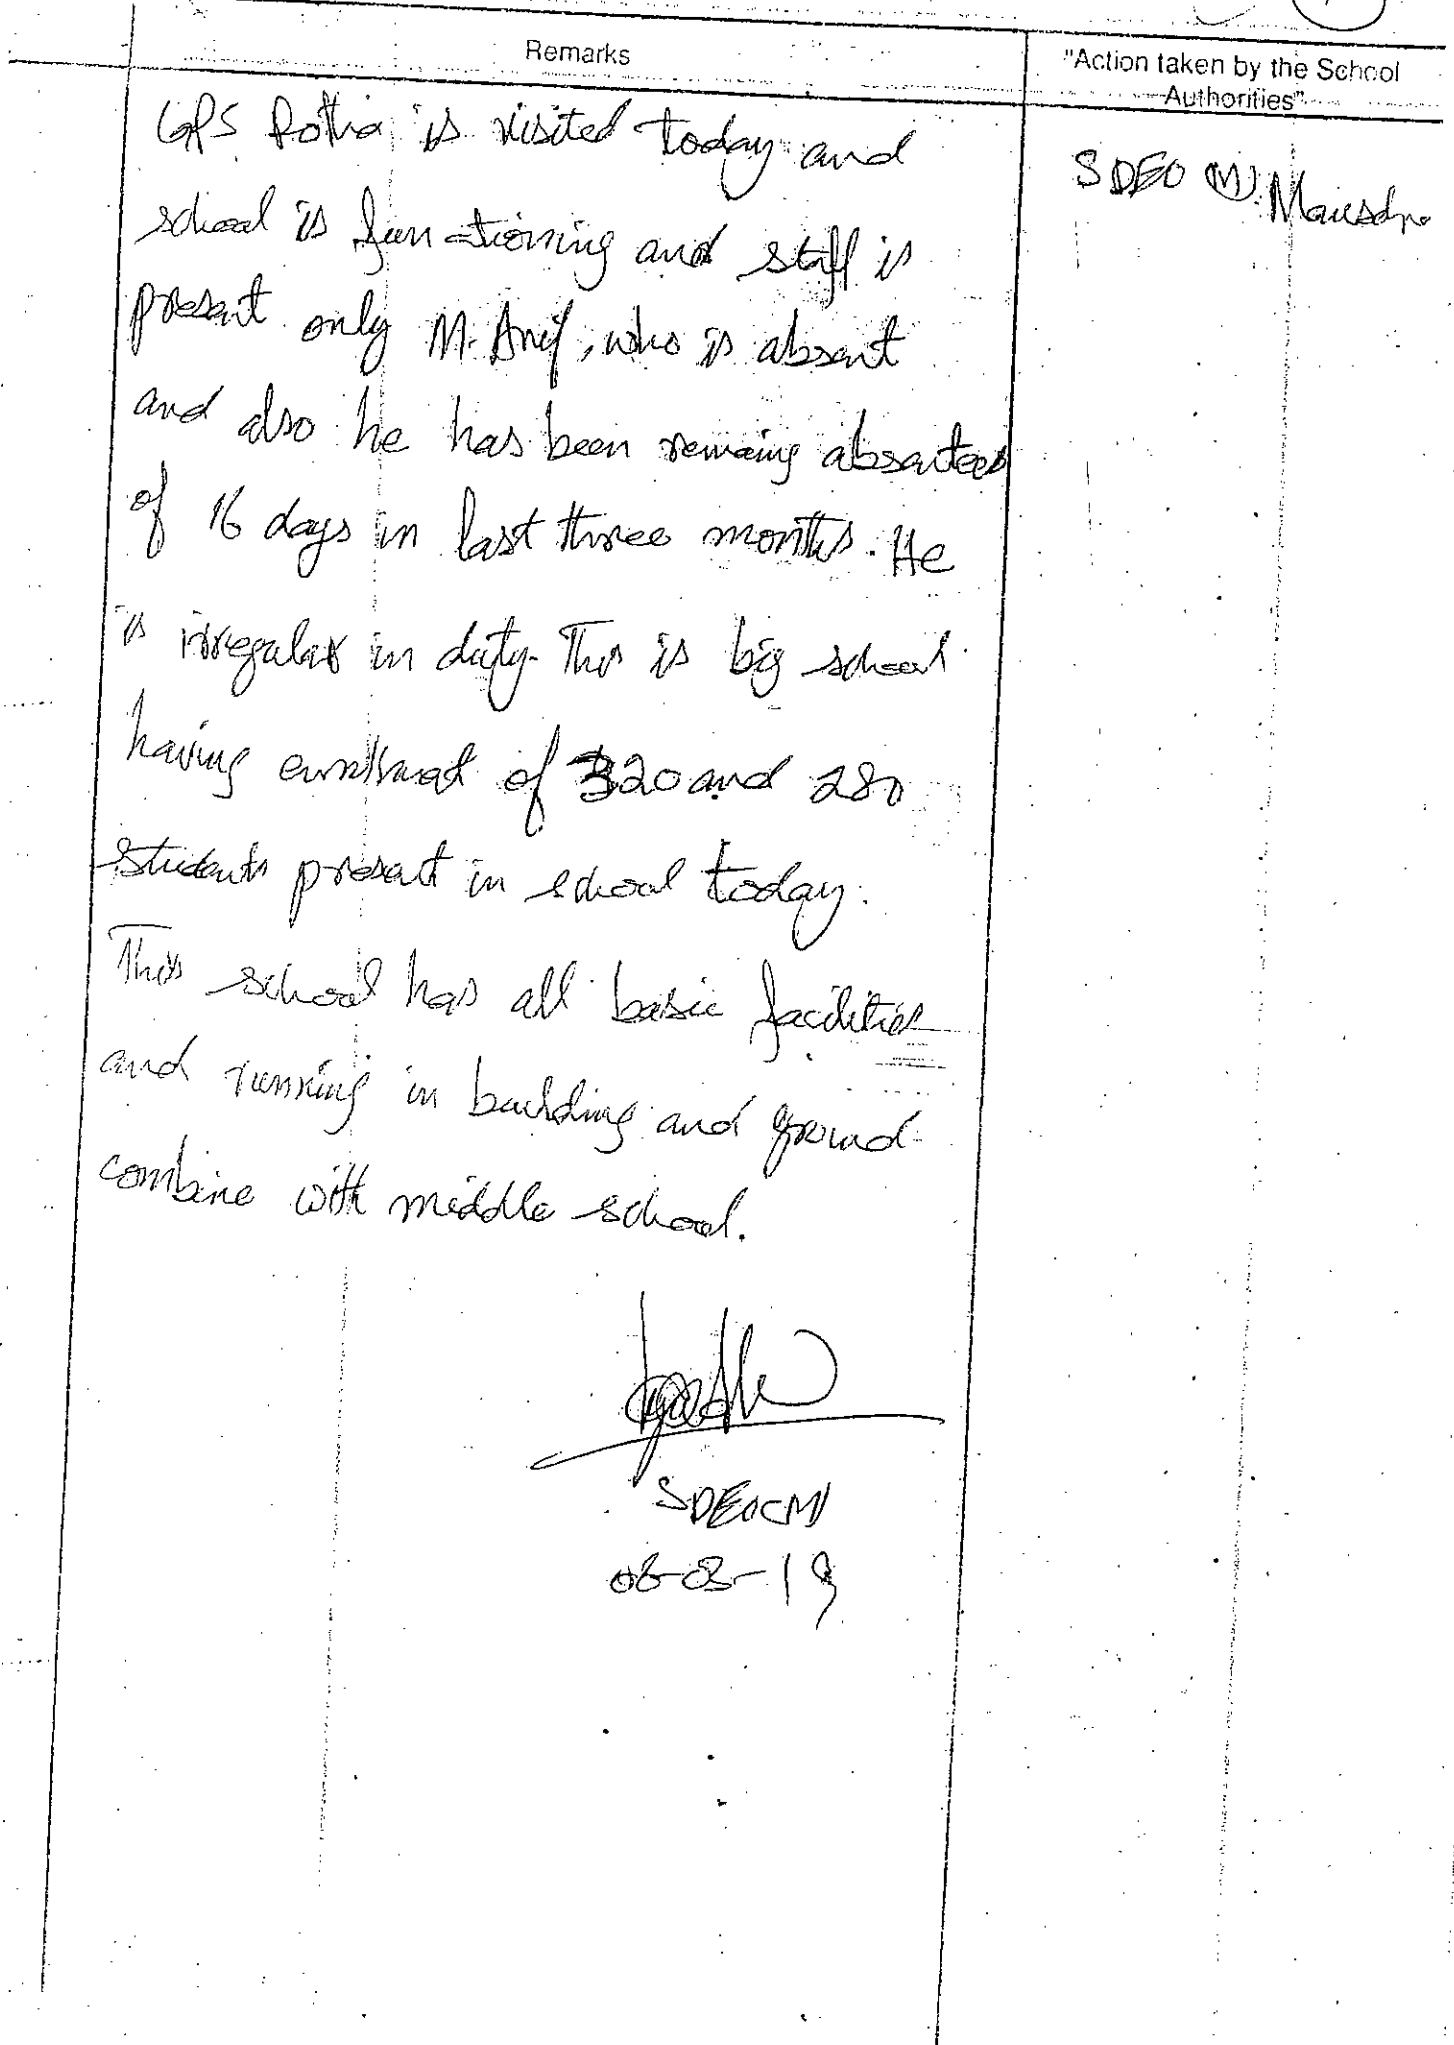 Remarks
"Action taken by the School
Authorities"
GPS Pothia is visited today and
school is functioning and staff is
present only M. Arif, who is absent
and also he has been remaing absentees
of 16 days in last three months. He
is irregular in duty. This is big school
having enrollment of 320 and 280
students present in school today.
This school has all basic facilities
and running in building and ground
combine with middle school.
SDEO (M)
06-03-19
SDEO (M) Mansehra